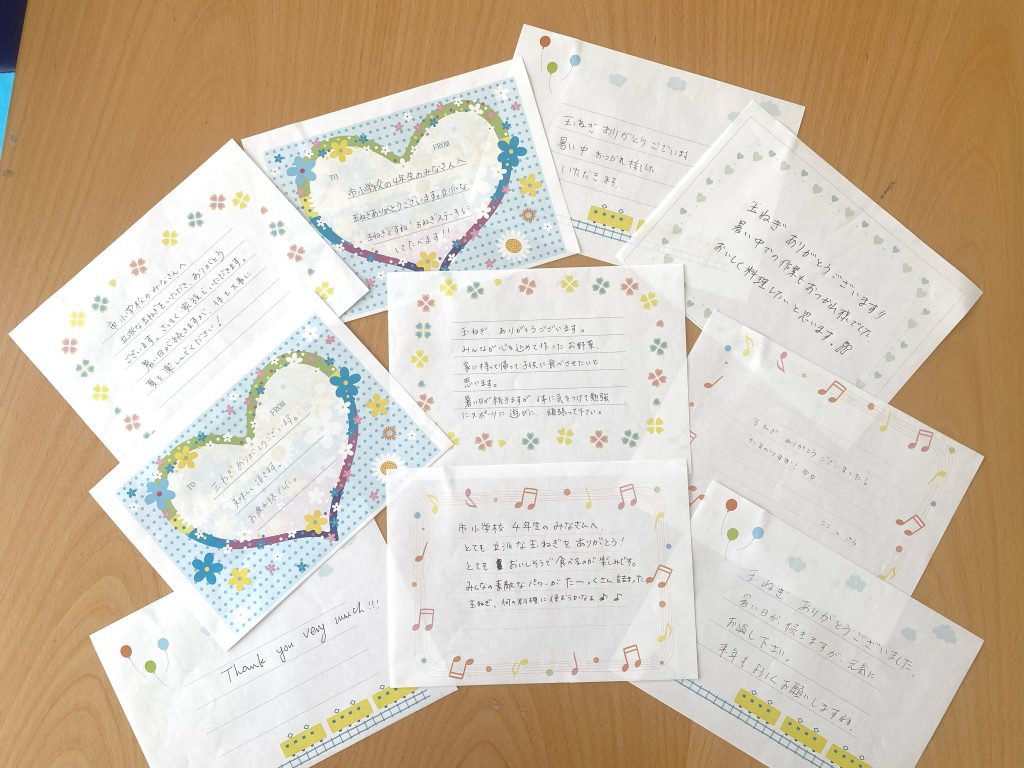 玉ねぎ ありがとうございます
暑い中 おつかれ様でした
いただきます。
FROM
TO
市小学校の4年生のみなさんへ
玉ねぎありがとうございます。立派な
玉ねぎですね! 玉ねぎステーキに
してたべます!!
玉ねぎ ありがとうございます!!
暑い中での作業もおつかれ様でした
おいしく料理したいと思います。
市小学校のみなさんへ
立派な玉ねぎをいただき、ありがとう
ございます。さっそく家族といただきます。
暑い日が続きますが、体を大事に
夏を楽しんでください!
玉ねぎ、ありがとうございます。
みんなが心を込めて作ったお野菜
家に持って帰って子供に食べさせたいと
思います。
暑い日が続きますが、体に気をつけて勉強
にスポーツに遊びに、頑張って下さい。
玉ねぎ ありがとうございました!
たすかります!!
FROM
TO
玉ねぎ ありがとうございます。
美味しく頂きます。
お疲れ様でした。
市小学校 4年生のみなさんへ
とても 立派な玉ねぎをありがとう!
とても おいしそうで食べるのが楽しみです。
みんなの素敵なパワーが たーっくさん 詰まった
玉ねぎ、何の料理に使おうかなぁ ♪ ♪
Thank you very much!!!
玉ねぎ ありがとうございました。
暑い日が続きますが、元気に
お過し下さい。
来年もよろしくお願いしますね。